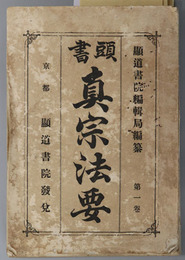 顯道書院編輯局編纂
第一卷
頭書
真宗法要
京都
顯道書院發兌